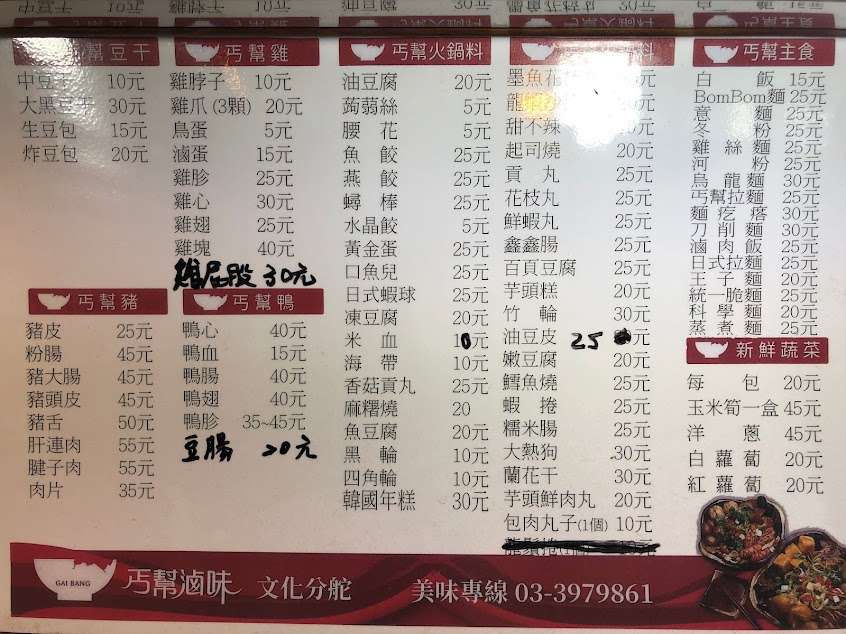 丐幫豆干
中豆干 10元
大黑豆干 30元
生豆包 15元
炸豆包 20元
丐幫雞
雞脖子 10元
雞爪(3顆) 20元
鳥蛋 5元
滷蛋 15元
雞胗 25元
雞心 30元
雞翅 25元
雞塊 40元
雞屁股 30元
丐幫豬
豬皮 25元
粉腸 45元
豬大腸 45元
豬頭皮 45元
豬舌 50元
肝連肉 55元
腱子肉 55元
肉片 35元
丐幫鴨
鴨心 40元
鴨血 15元
鴨腸 40元
鴨翅 40元
鴨胗 35~45元
豆腸 20元
丐幫火鍋料
油豆腐 20元
蒟蒻絲 5元
腰花 5元
魚餃 25元
燕餃 25元
蟳棒 25元
水晶餃 5元
黃金蛋 25元
口魚兒 25元
日式蝦球 25元
凍豆腐 20元
米血 10元
海帶 10元
香菇貢丸 25元
麻糬燒 20
魚豆腐 20元
黑輪 10元
四角輪 10元
韓國年糕 30元
料
墨魚花
龍蝦
甜不辣 元
起司燒 20元
貢丸 25元
花枝丸 25元
鮮蝦丸 25元
鑫鑫腸 25元
百頁豆腐 25元
芋頭糕 20元
竹輪 30元
油豆皮 25 元
嫩豆腐 20元
鱈魚燒 25元
蝦捲 25元
糯米腸 25元
大熱狗 30元
蘭花干 30元
芋頭鮮肉丸 20元
包肉丸子(1個) 10元
丐幫主食
白飯 15元
BomBom麵 25元
意麵 25元
冬粉 25元
雞絲麵 25元
河粉 25元
烏龍麵 30元
丐幫拉麵 25元
麵疙瘩 30元
刀削麵 30元
滷肉飯 25元
日式拉麵 25元
王子麵 20元
統一脆麵 25元
科學麵 20元
蒸煮麵 25元
新鮮蔬菜
每包 20元
玉米筍一盒 45元
洋蔥 45元
白蘿蔔 20元
紅蘿蔔 20元
GAI BANG
丐幫滷味 文化分舵 美味專線 03-3979861